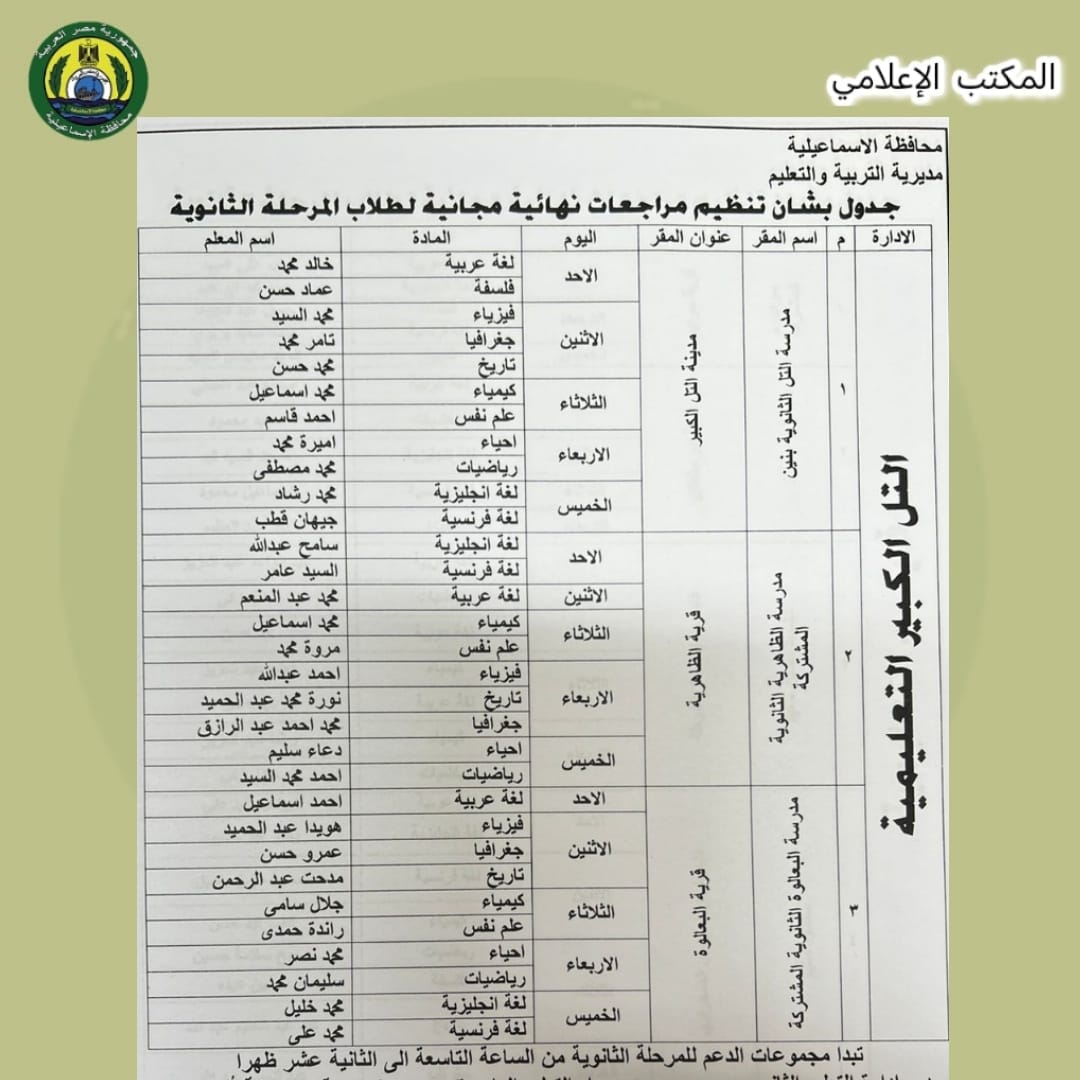 جمهورية مصر العربية
محافظة الإسماعيلية
المكتب الإعلامي
محافظة الاسماعيلية
مديرية التربية والتعليم
جدول بشان تنظيم مراجعات نهائية مجانية لطلاب المرحلة الثانوية
الادارة م اسم المقر عنوان المقر اليوم المادة اسم المعلم
التل الكبير التعليمية
١ مدرسة التل الثانوية بنين مدينة التل الكبير
الاحد لغة عربية خالد محمد
فلسفة عماد حسن
الاثنين فيزياء محمد السيد
جغرافيا تامر محمد
تاريخ محمد حسن
الثلاثاء كيمياء محمد اسماعيل
علم نفس احمد قاسم
الاربعاء احياء اميرة محمد
رياضيات محمد مصطفى
الخميس لغة انجليزية محمد رشاد
لغة فرنسية جيهان قطب
٢ مدرسة الظاهرية الثانوية المشتركة قرية الظاهرية
الاحد لغة انجليزية سامح عبدالله
لغة فرنسية السيد عامر
الاثنين لغة عربية محمد عبد المنعم
الثلاثاء كيمياء محمد اسماعيل
علم نفس مروة محمد
الاربعاء فيزياء احمد عبدالله
تاريخ نورة محمد عبد الحميد
جغرافيا محمد احمد عبد الرازق
الخميس احياء دعاء سليم
رياضيات احمد محمد السيد
٣ مدرسة البعالوة الثانوية المشتركة قرية البعالوة
الاحد لغة عربية احمد اسماعيل
الاثنين فيزياء هويدا عبد الحميد
جغرافيا عمرو حسن
تاريخ مدحت عبد الرحمن
الثلاثاء كيمياء جلال سامى
علم نفس راندة حمدى
الاربعاء احياء محمد نصر
رياضيات سليمان محمد
الخميس لغة انجليزية محمد خليل
لغة فرنسية محمد على
تبدا مجموعات الدعم للمرحلة الثانوية من الساعة التاسعة الى الثانية عشر ظهرا